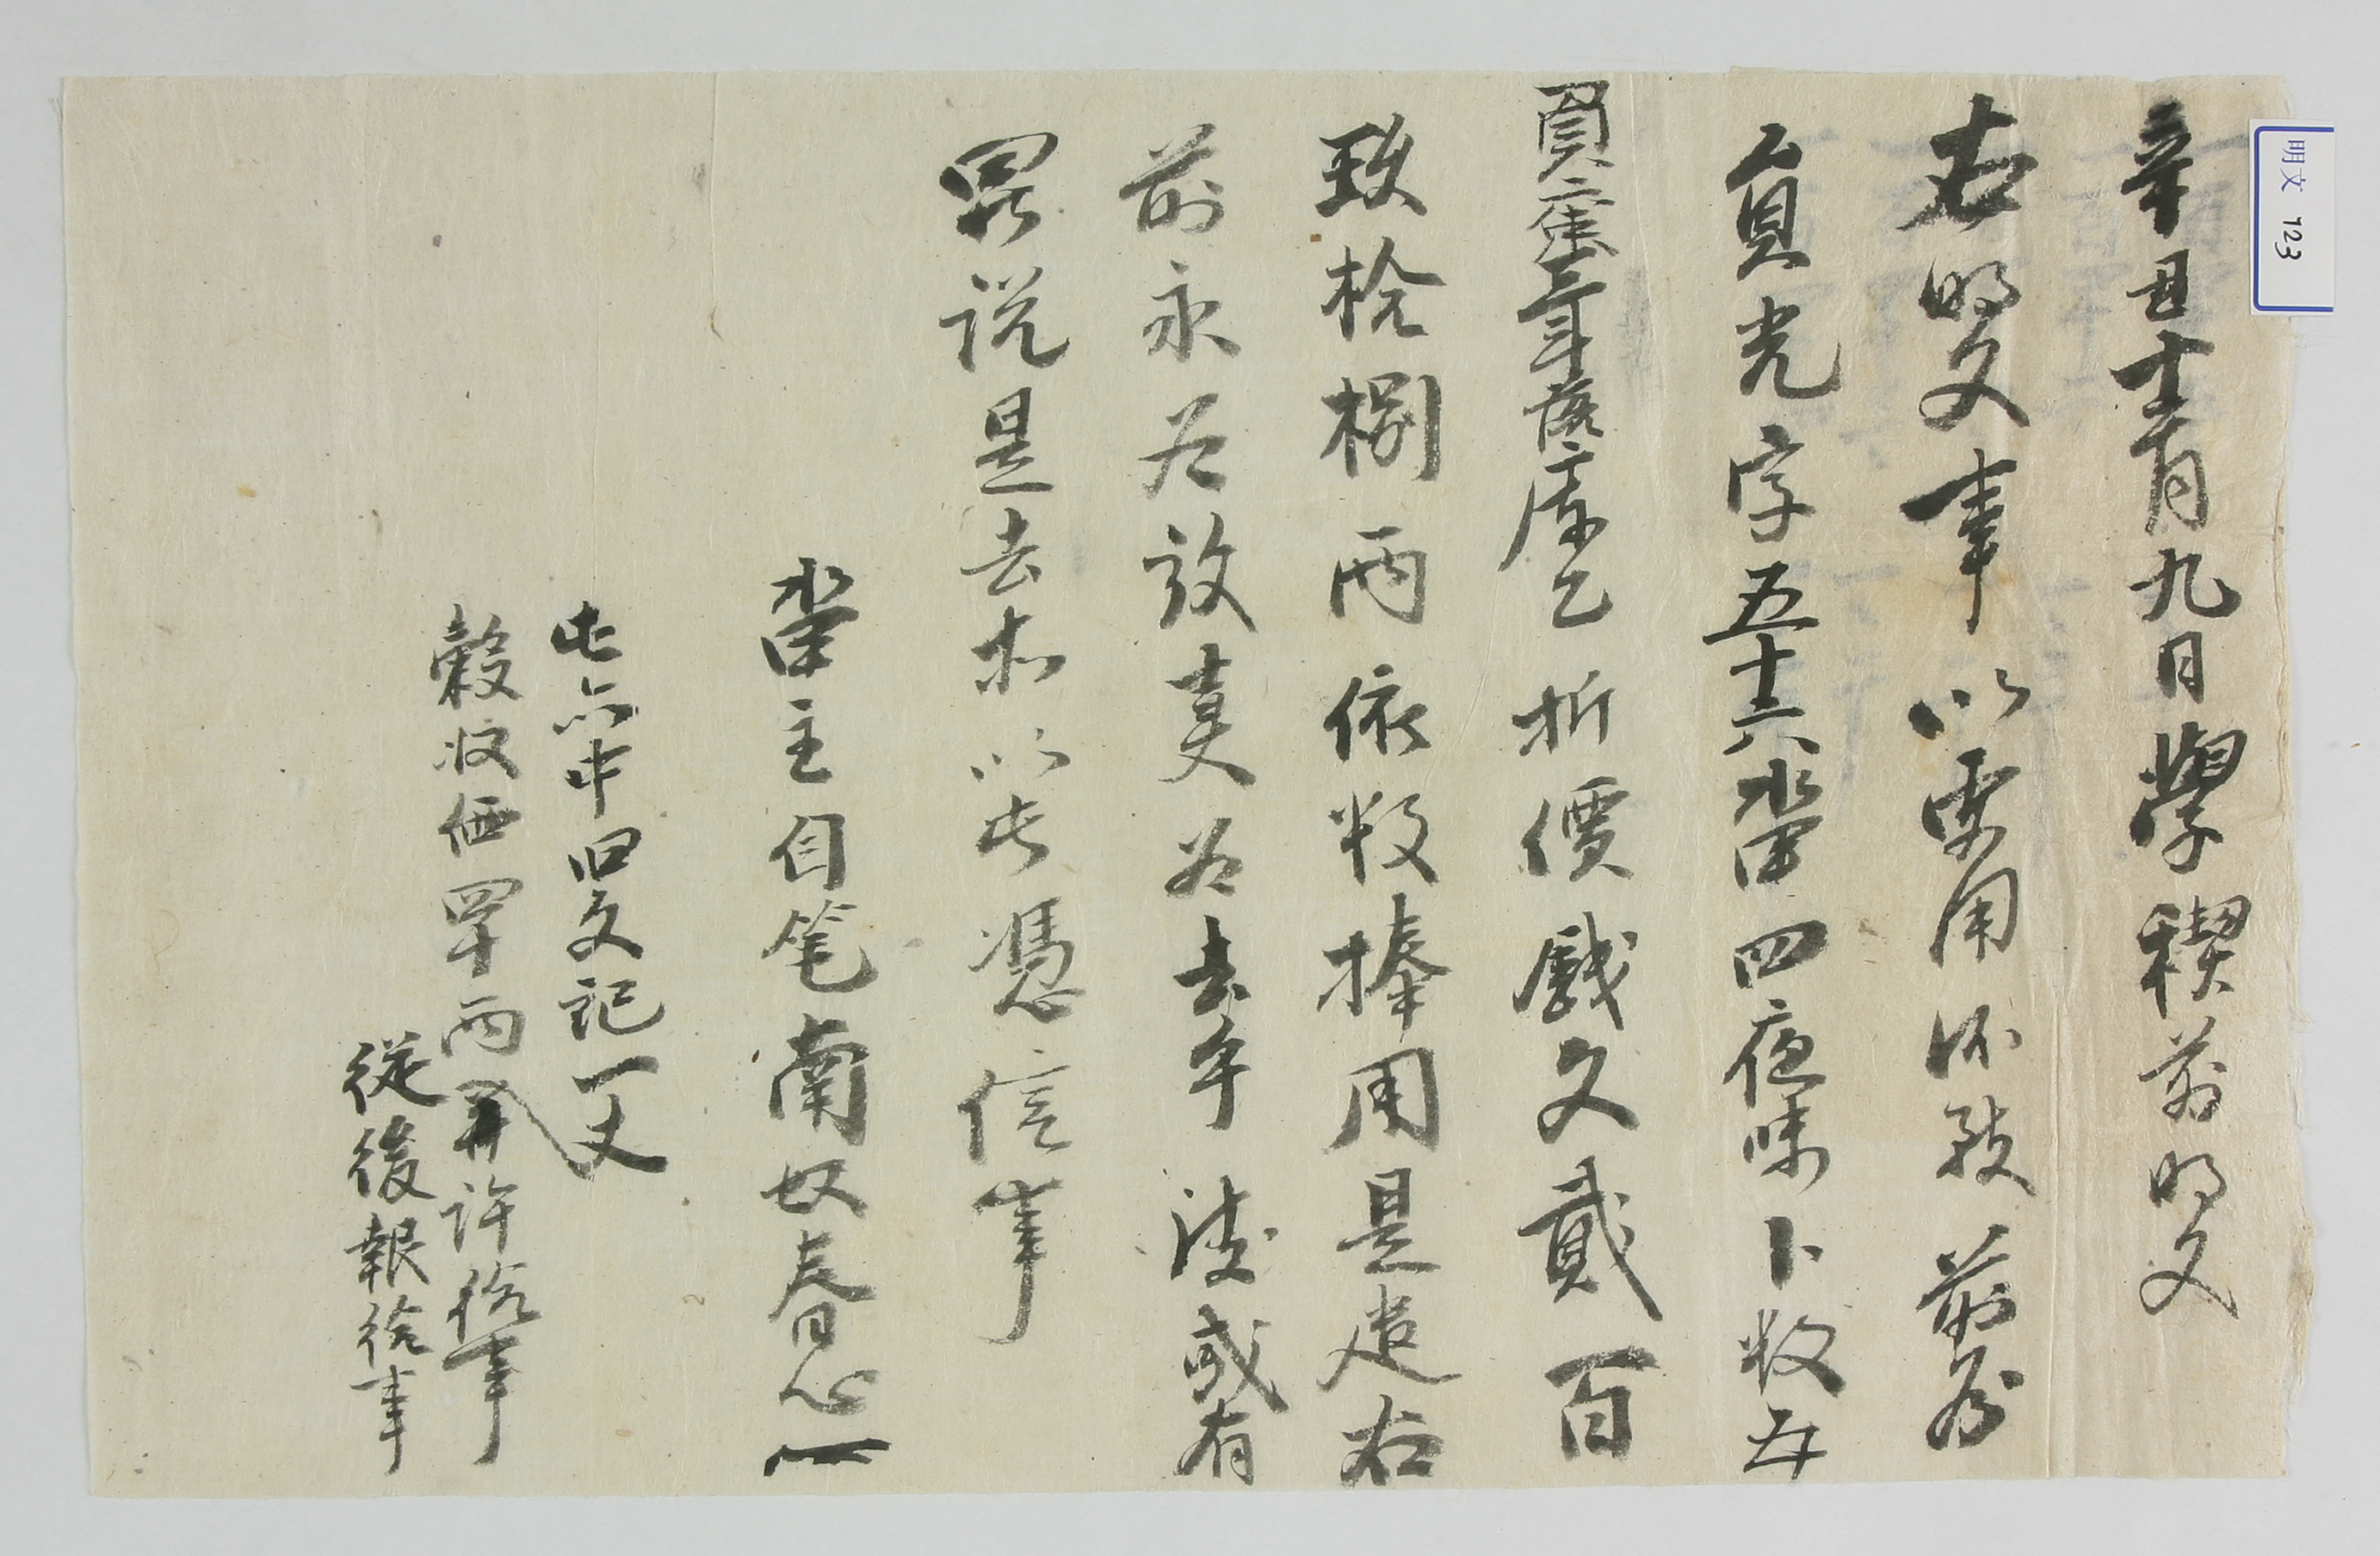 辛丑十二月九日學稧前明文
右明文事以要用所致前
員光字五十六畓四夜味卜數五
負壹斗落庫乙折價戲文貳百
致拾捌兩依數捧用是遣右
前永永放賣爲去乎後或有
異說是去等以此憑信事
畓主自笔南奴春心
此亦中旧文記一丈
穀收価四十兩并許給事
從後報給事
明文 723